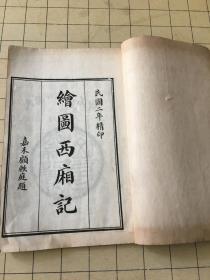 民國二年精印
繪圖西廂記
嘉禾顧敦庭題